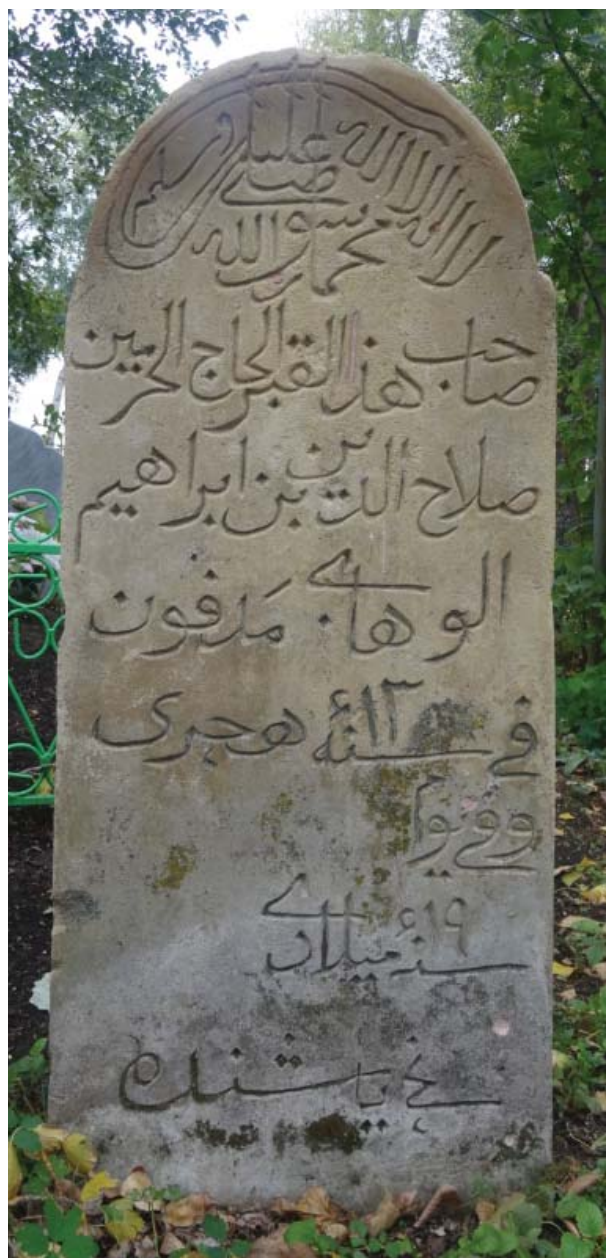 لا اله الا الله
محمد رسول الله
صلى عليه وسلم
صاحب هذا القبر الحاج الحرمين
صلاح الدين بن ابراهيم
الوهابے مدفون
في سنه ١٣ء هجرى
وفي يوم
سنه ١٩ء ميلادے
ياشنده